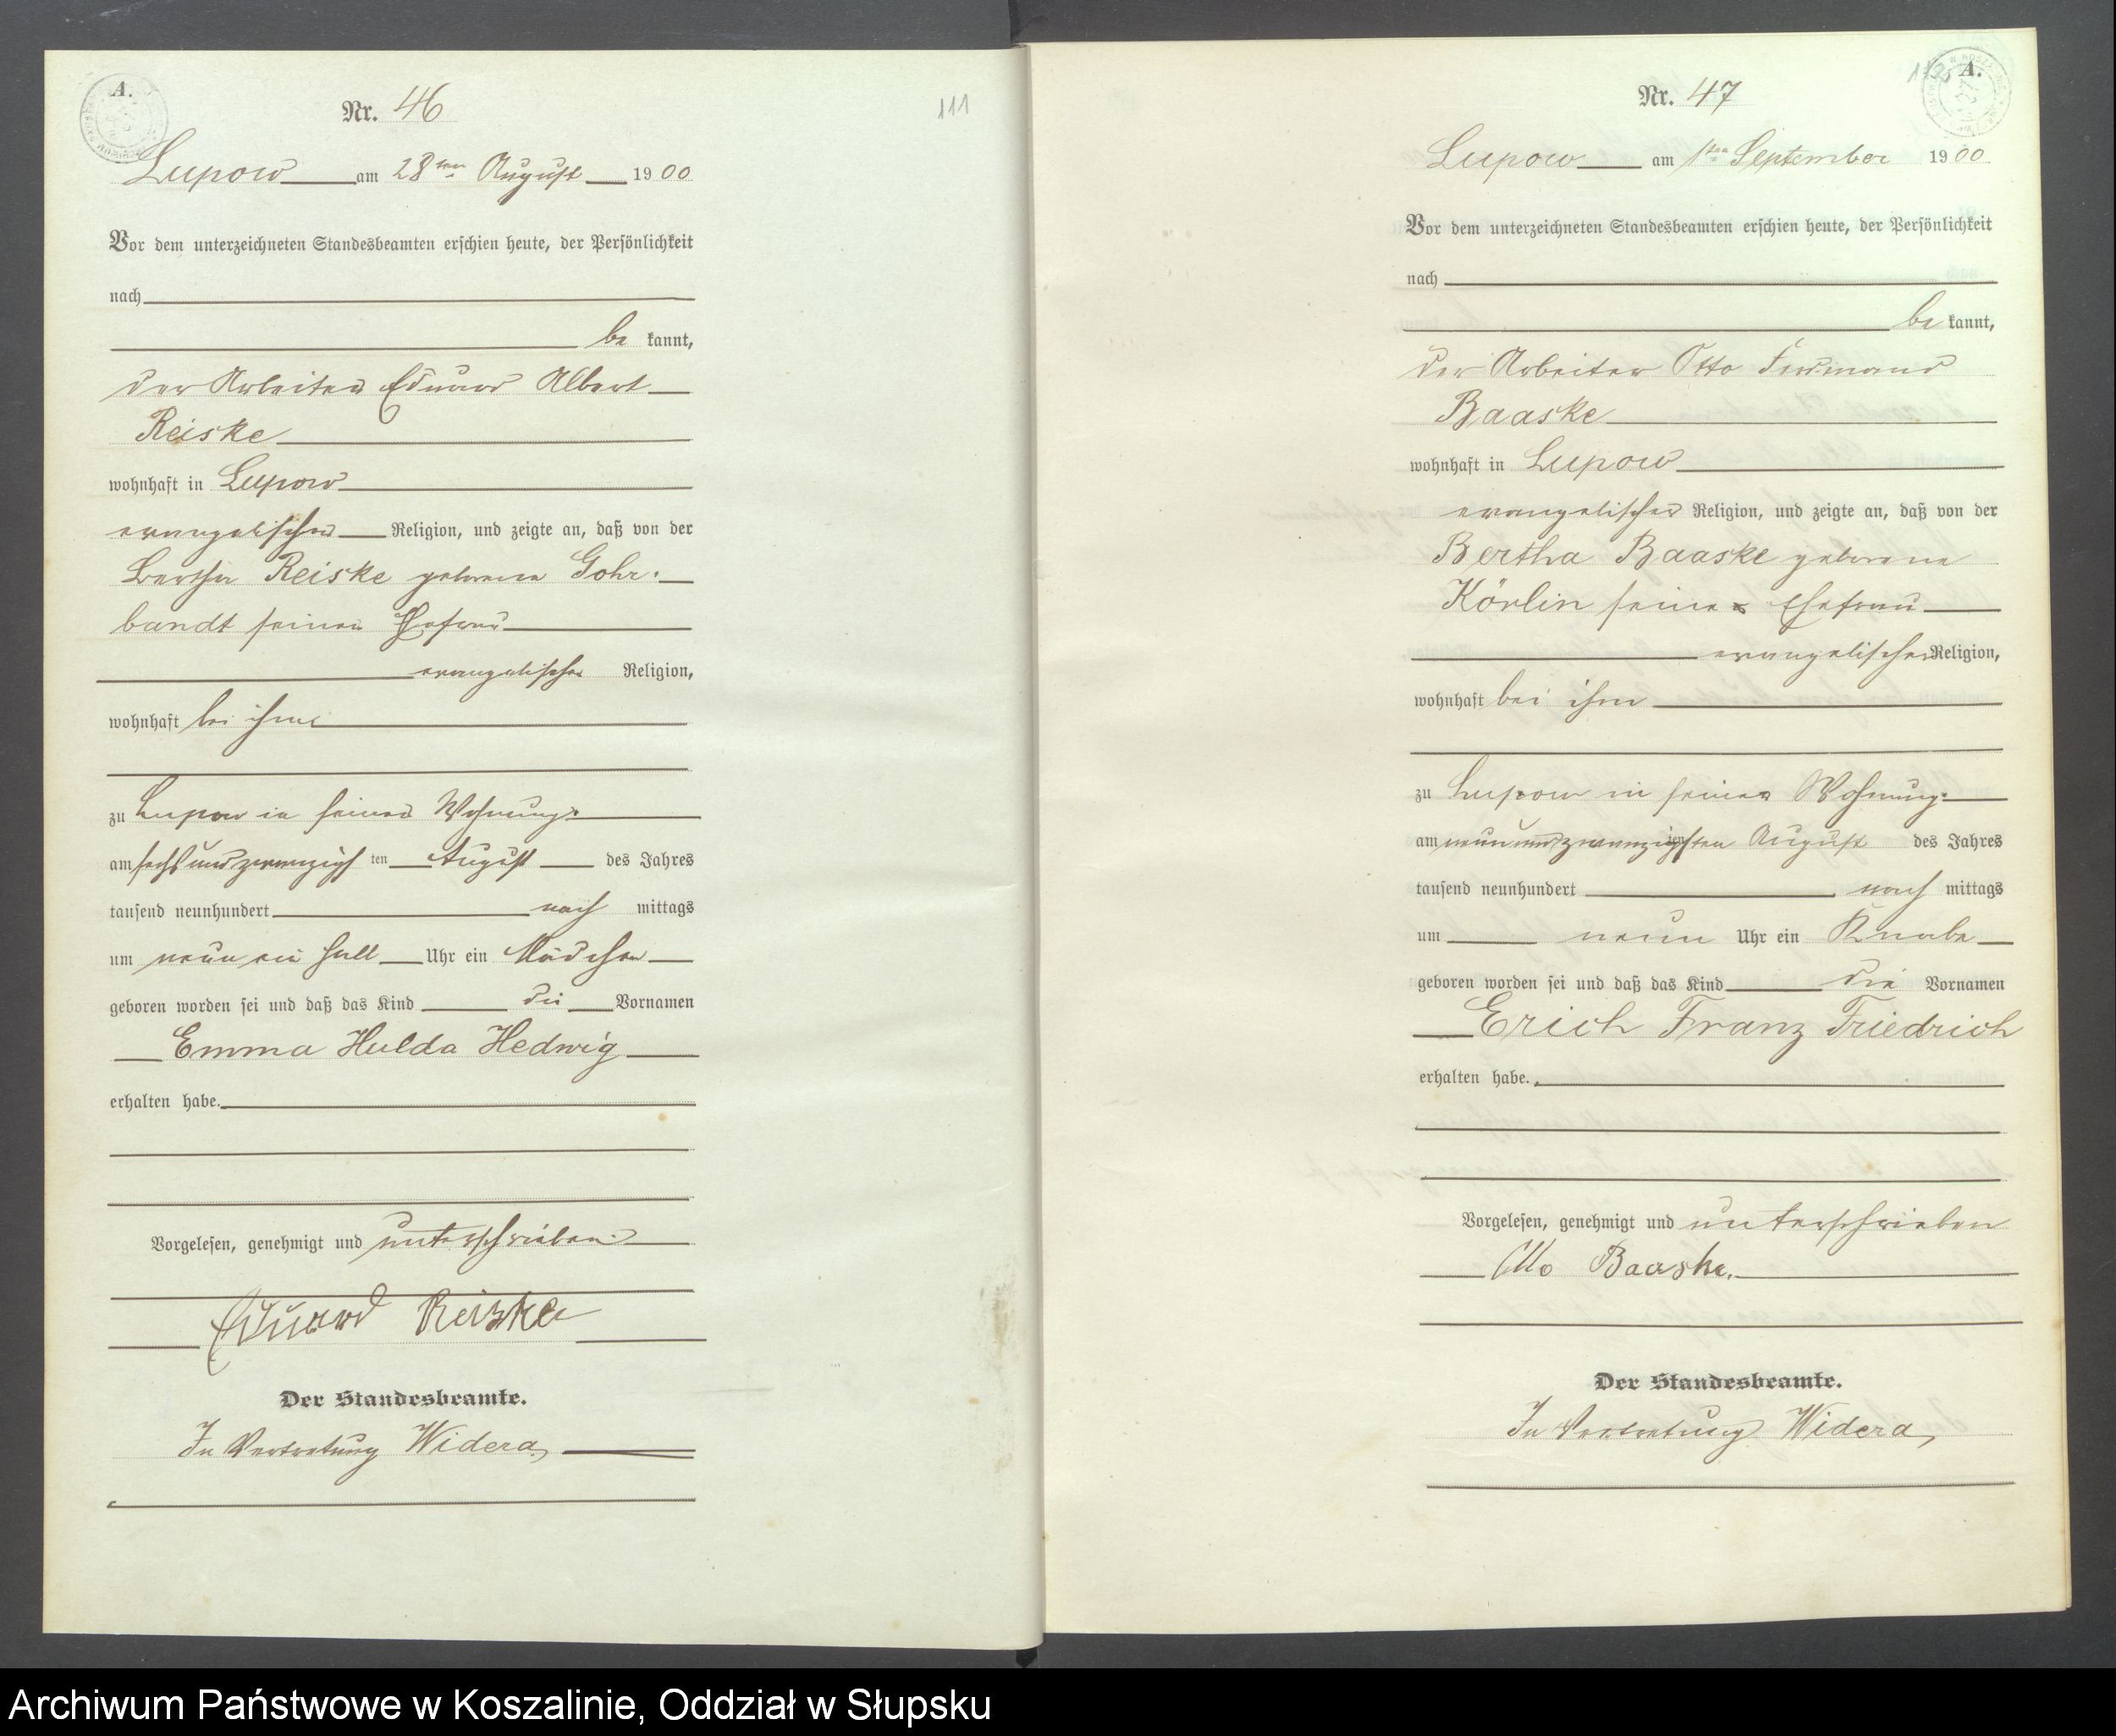 A.
Nr. 46
111
Lupow am 28ten August 1900
Vor dem unterzeichneten Standesbeamten erschien heute, der Persönlichkeit
nach
be kannt,
der Arbeiter Eduard Albert
Reiske
wohnhaft in Lupow
evangelischer Religion, und zeigte an, daß von der
Bertha Reiske geborene Gohr-
bandt seiner Ehefrau
evangelischer Religion,
wohnhaft bei ihm
zu Lupow in seiner Wohnung
am sechsundzwanzigsten August des Jahres
tausend neunhundert nach mittags
um neun ein halb Uhr ein Mädchen
geboren worden sei und daß das Kind die Vornamen
Emma Hulda Hedwig
erhalten habe.
Vorgelesen, genehmigt und unterschrieben
Eduard Reiske
Der Standesbeamte.
In Vertretung Widera
A.
Nr. 47
Lupow am 1ten September 1900
Vor dem unterzeichneten Standesbeamten erschien heute, der Persönlichkeit
nach
be kannt,
der Arbeiter Otto Ferdinand
Baaske
wohnhaft in Lupow
evangelischer Religion, und zeigte an, daß von der
Bertha Baaske geborene
Körlin seiner Ehefrau
evangelischer Religion,
wohnhaft bei ihm
zu Lupow in seiner Wohnung
am neunundzwanzigsten ten August des Jahres
tausend neunhundert nach mittags
um neun Uhr ein Knabe
geboren worden sei und daß das Kind die Vornamen
Erich Franz Friedrich
erhalten habe.
Vorgelesen, genehmigt und unterschrieben
Otto Baaske.
Der Standesbeamte.
In Vertretung Widera
Archiwum Państwowe w Koszalinie, Oddział w Słupsku